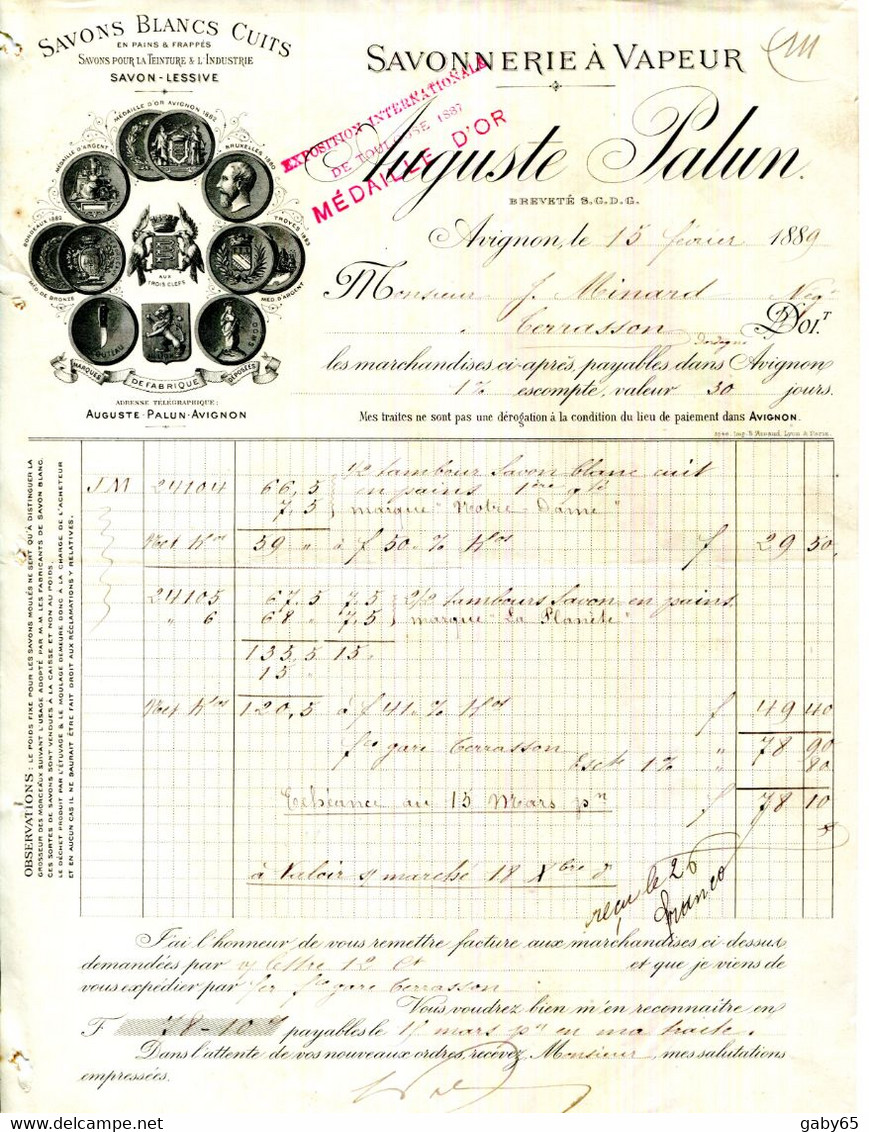 SAVONS BLANCS CUITS
EN PAINS & FRAPPÉS
SAVONS POUR LA TEINTURE & L'INDUSTRIE
SAVON-LESSIVE
MÉDAILLE D'OR AVIGNON 1882
MÉDAILLE D'ARGENT
BRUXELLES 1880
BORDEAUX 1882
MÉD. DE BRONZE
TROYES 1883
MÉD. D'ARGENT
AUX
TROIS CLEFS
COUTEAU
LION
DOMS
MARQUES DE FABRIQUE DÉPOSÉES
ADRESSE TÉLÉGRAPHIQUE:
AUGUSTE-PALUN-AVIGNON
SAVONNERIE À VAPEUR
EXPOSITION INTERNATIONALE
DE TOULOUSE 1887
MÉDAILLE D'OR
Auguste Palun.
BREVETÉ S.G.D.G.
Avignon, le 15 février 1889
Monsieur J. Minard Negt
à Terrasson Dordogne DOIT
les marchandises ci-après, payables dans Avignon
1% escompte, valeur 30 jours.
Mes traites ne sont pas une dérogation à la condition du lieu de paiement dans AVIGNON.
Imp. B. Arnaud, Lyon & Paris
OBSERVATIONS: LE POIDS FIXE POUR LES SAVONS MOULÉS NE SERT QU'À DISTINGUER LA
GROSSEUR DES MORCEAUX SUIVANT L'USAGE ADOPTÉ PAR M.M. LES FABRICANTS DE SAVON BLANC.
CES SORTES DE SAVONS SONT VENDUES À LA CAISSE ET NON AU POIDS.
LE DÉCHET PRODUIT PAR L'ÉTUVAGE & LE MOULAGE DEMEURE DONC À LA CHARGE DE L'ACHETEUR
ET EN AUCUN CAS IL NE SAURAIT ÊTRE FAIT DROIT AUX RÉCLAMATIONS Y RELATIVES.
1/2 tambour Savon blanc cuit
JM 24104 66,5 en pains 1ère qté
7.5 marque "Notre-Dame"
Net Kos 59 " à f 50 % Kos f 29 50
24105 67.5 7.5 2/2 tambours Savon en pains
" 6 68 " 7.5 marque "La Planète"
135,5 15.
15 "
Net Kos 120,5 à f 41 % Kos f 49 40
" 78 90
fco gare Terrasson Escte 1% " 80
Echéance au 15 Mars pn f 78 10
à Valoir s/ marché 18 Xbre d
reçu le 26
franco
J'ai l'honneur de vous remettre facture aux marchandises ci-dessus
demandées par v/ lettre 12 ct et que je viens de
vous expédier par fer fco gare Terrasson
Vous voudrez bien m'en reconnaître en
F 78-10 payables le 15 mars pn en ma traite.
Dans l'attente de vos nouveaux ordres, recevez Monsieur, mes salutations
empressées.
gaby65